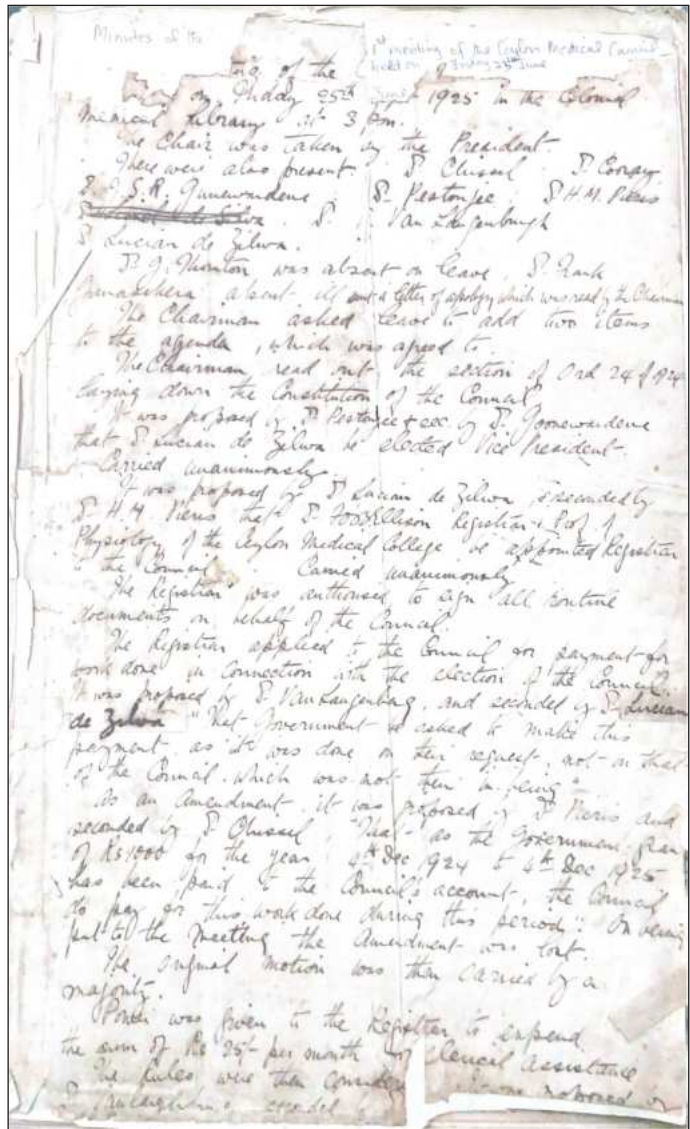 Minutes of the
1st meeting of the Ceylon Medical Council
held on Friday 25th June
of the
on Friday 25th 1925 in the Colonial
Medical Library at 3 p.m.
The Chair was taken by the President.
There were also present. Dr Clussel Dr Cooray
Dr S.R. Gunewardene Dr Pestonjee Dr H.M. Pieris
de Silva Dr Van Langenburgh
Dr Lucian de Zilwa.
Dr J. Thornton was absent on leave, Dr Frank
Gunasekera absent ill a letter of apology which was read by the Chairman
The Chairman asked leave to add two items
to the agenda, which was agreed to.
The Chairman read out the section of Ord 24 of 1924
laying down the Constitution of the Council
It was proposed by Dr Pestonjee & sec. by Dr Goonewardene
that Dr Lucian de Zilwa be elected Vice President
Carried unanimously.
It was proposed by Dr Lucian de Zilwa, & seconded by
Dr H.M. Pieris that Dr Ellison Registrar & Prof. of
Physiology of the Ceylon Medical College be appointed Registrar
to the Council. Carried unanimously
The Registrar was authorised to sign all routine
documents on behalf of the Council.
The Registrar applied to the Council for payment for
work done in connection with the election of the Council.
It was proposed by Dr Van Langenberg, and seconded by Dr Lucian
de Zilwa "that Government be asked to make this
payment, as it was done on their request, not on that
of the Council, which was not then in being"
As an amendment, it was proposed by Dr Pieris and
seconded by Dr Clussel "that as the Government gran
of Rs 1000 for the year 4th Dec 1924 to 4th Dec 1925
has been paid to the Council's account, the Council
do pay for this work done during this period". On being
put to the meeting the amendment was lost.
The original motion was then carried by a
majority.
Power was given to the Registrar to expend
the sum of Rs 25/- per month for clerical assistance
The Rules were then